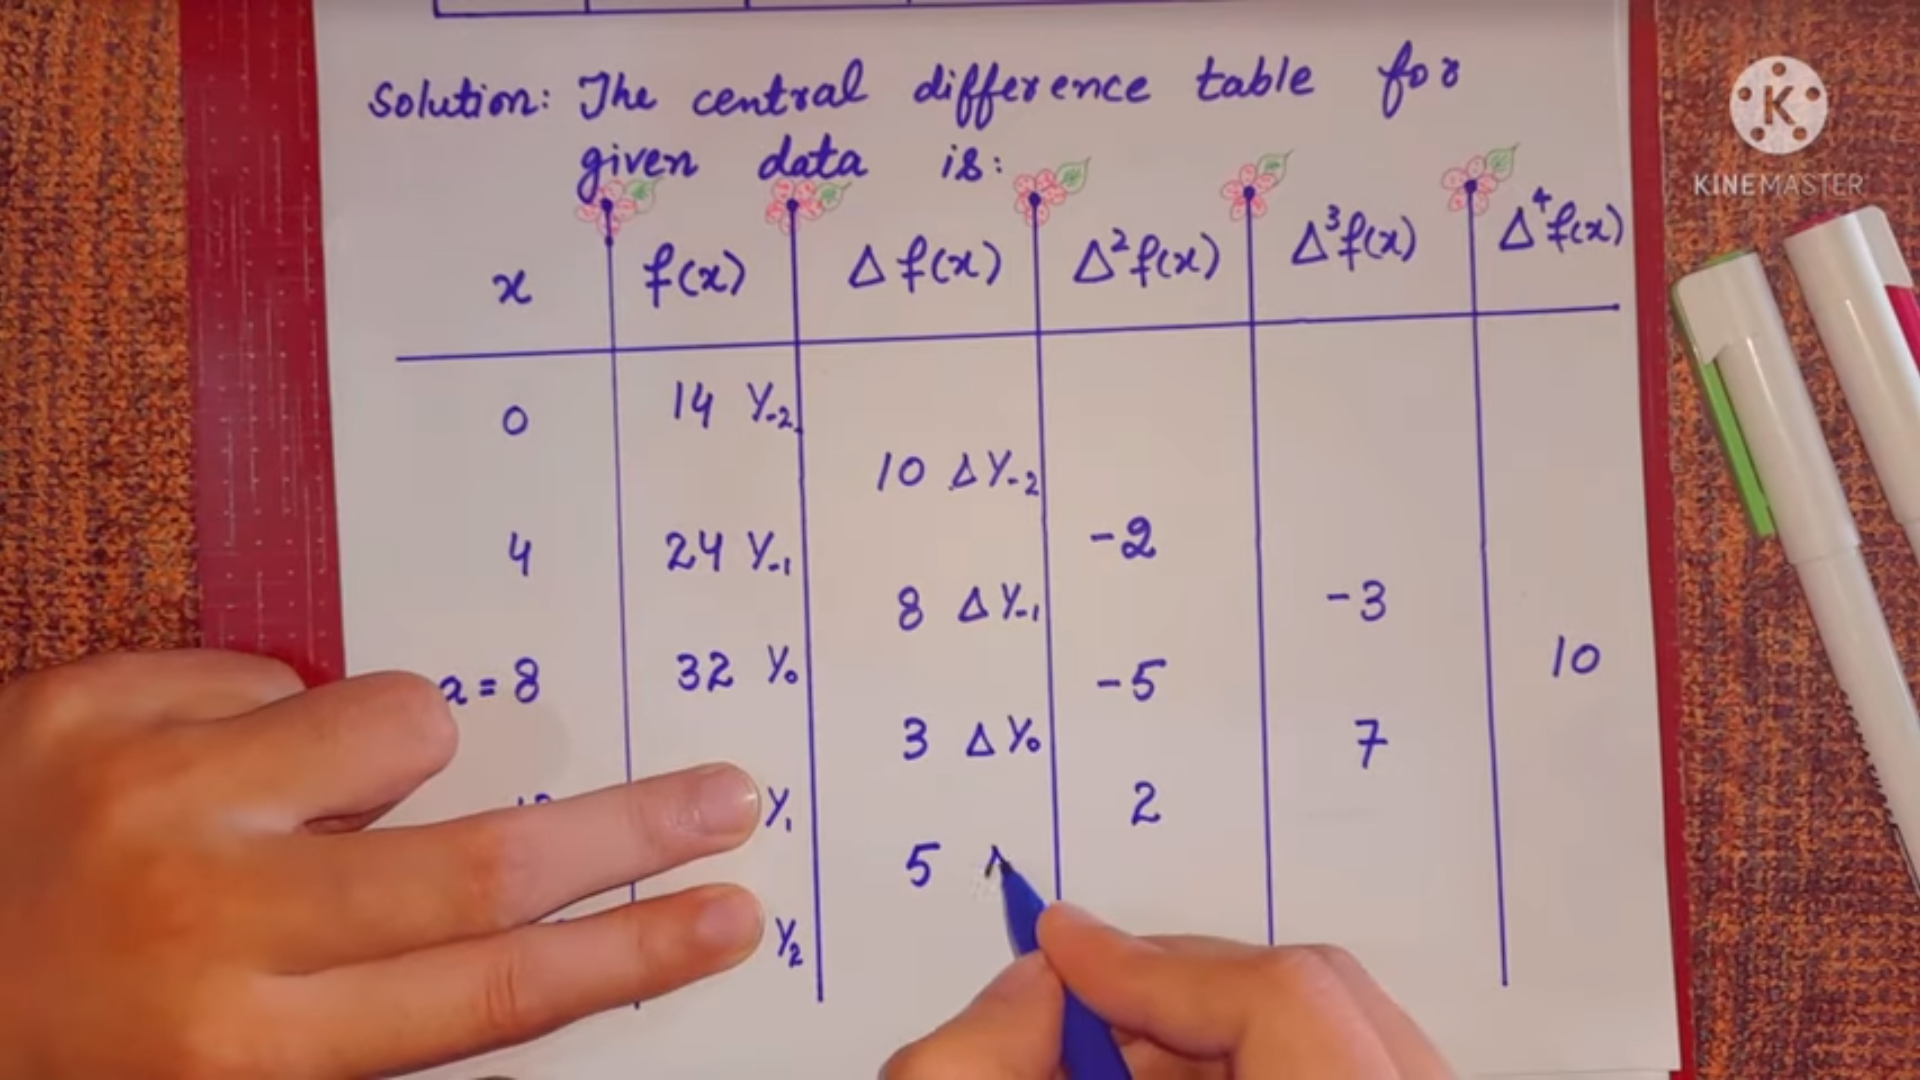 Solution: The central difference table for
given data is:
x f(x) Δf(x) Δ²f(x) Δ³f(x) Δ⁴f(x)
0 14 Y₋₂
10 ΔY₋₂
4 24 Y₋₁ -2
8 ΔY₋₁ -3
a = 8 32 Y₀ -5 10
3 ΔY₀ 7
Y₁ 2
5
Y₂
K
KINEMASTER